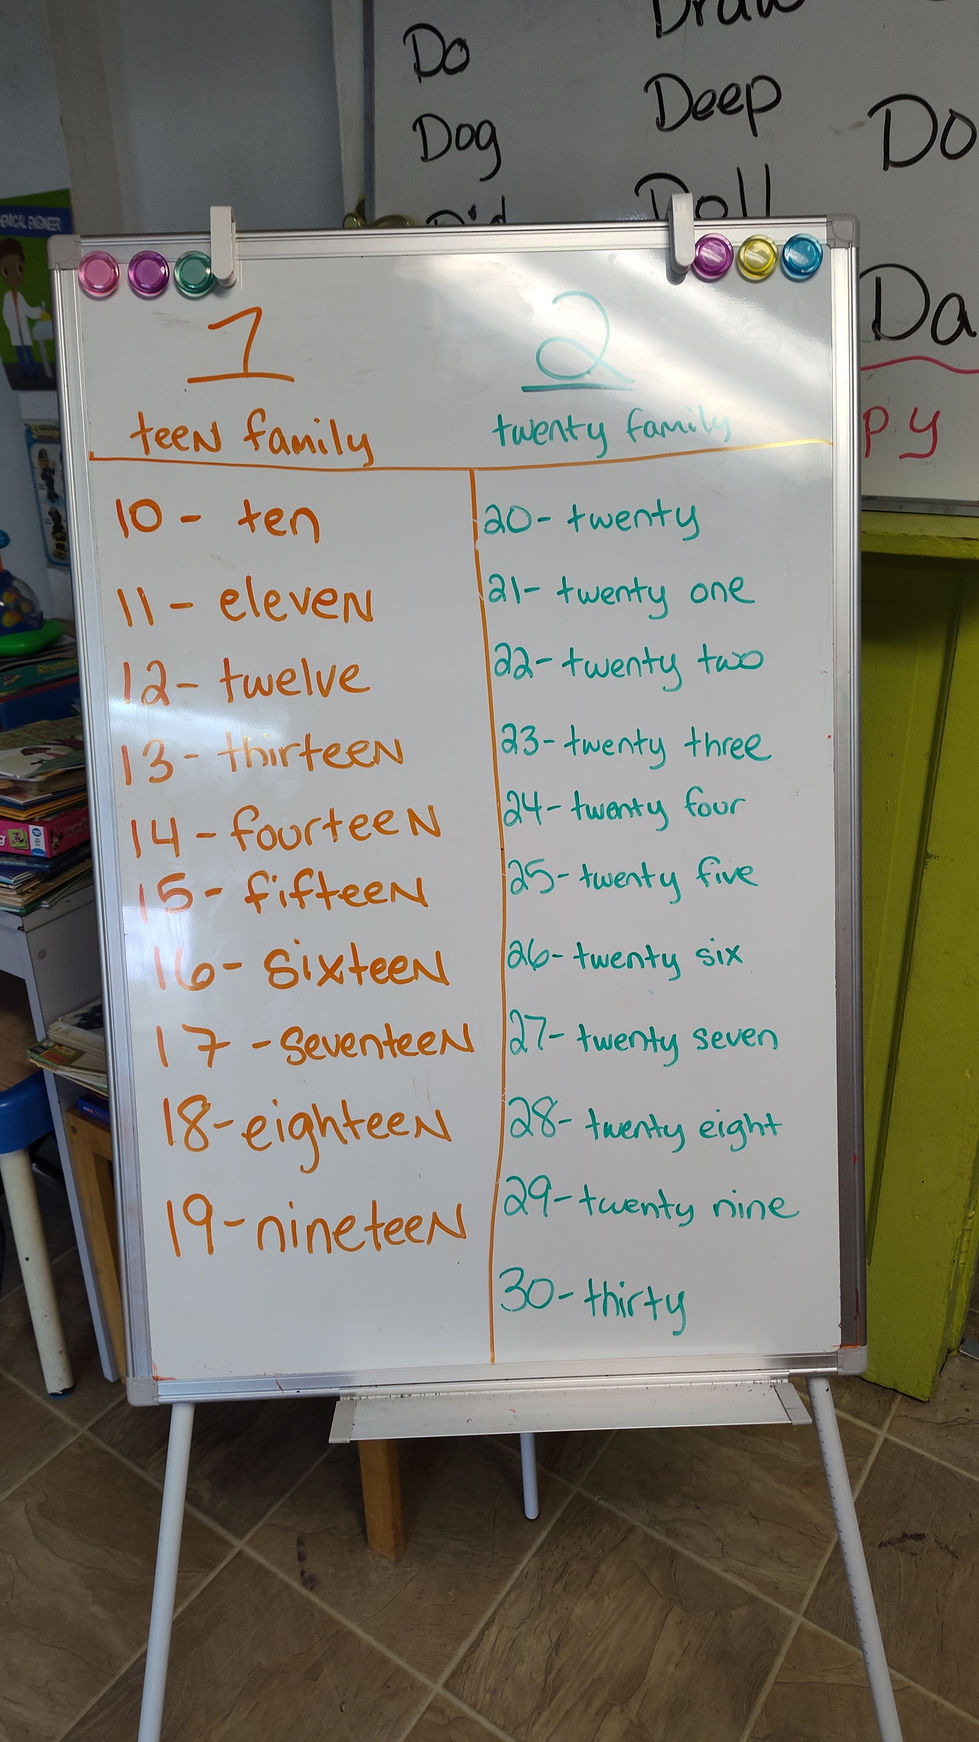 Do
Dog
Did
Draw
Deep
Doll
Do
Da
py
CHEMICAL ENGINEER
1
teen family
10 - ten
11 - eleven
12 - twelve
13 - thirteen
14 - fourteen
15 - fifteen
16 - sixteen
17 - seventeen
18 - eighteen
19 - nineteen
2
twenty family
20 - twenty
21 - twenty one
22 - twenty two
23 - twenty three
24 - twenty four
25 - twenty five
26 - twenty six
27 - twenty seven
28 - twenty eight
29 - twenty nine
30 - thirty